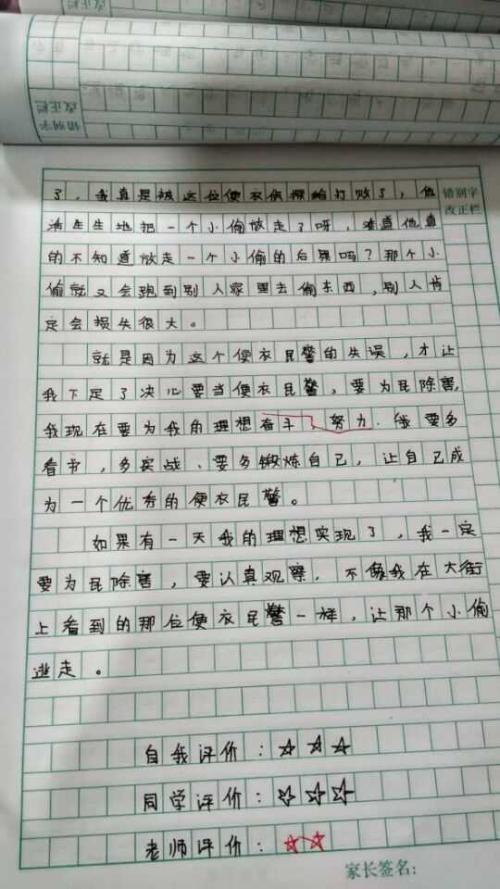 错别字
改正栏
错别字
改正栏
了，我真是被这位便衣 打败了，他
活生生地把一个小偷放走了呀，难道他真
的不知道放走一个小偷的后果吗？那个小
偷就又会跑到别人家里去偷东西，别人肯
定会损失很大。
就是因为这个便衣民警的失误，才让
我下定了决心要当便衣民警，要为民除害，
我现在要为我的理想奋斗、努力．我要多
看书，多实战、要多锻炼自己，让自己成
为一个优秀的便衣民警。
如果有一天我的理想实现了，我一定
要为民除害，要认真观察．不像我在大街
上看到的那位便衣民警一样，让那个小偷
逃走。
自我评价：☆☆☆
同学评价：☆☆☆
老师评价：☆☆
家长签名：